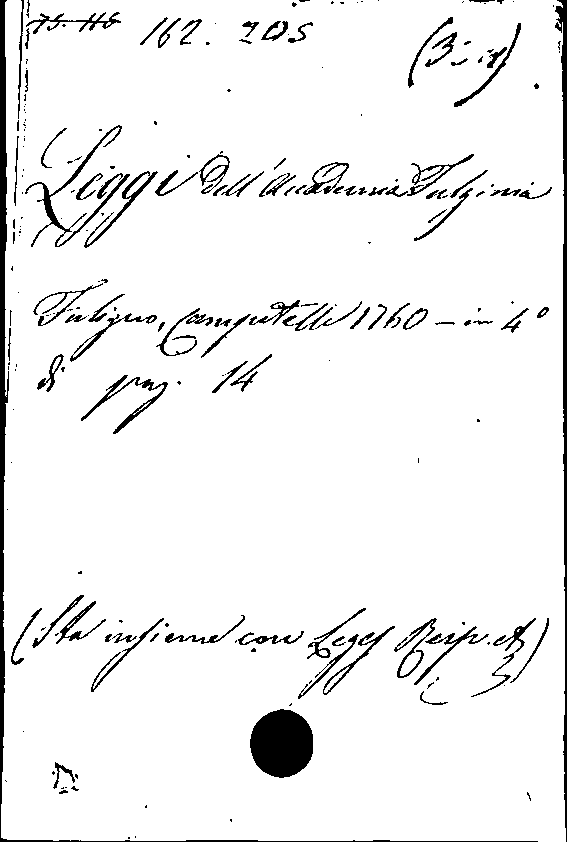 75. H6 162. 205
Leggi dell'Accademia Fulginia
Fuligno, Campitelli 1760 - in 4°
di pag. 14
(Sta insieme con Leges Reip. et)